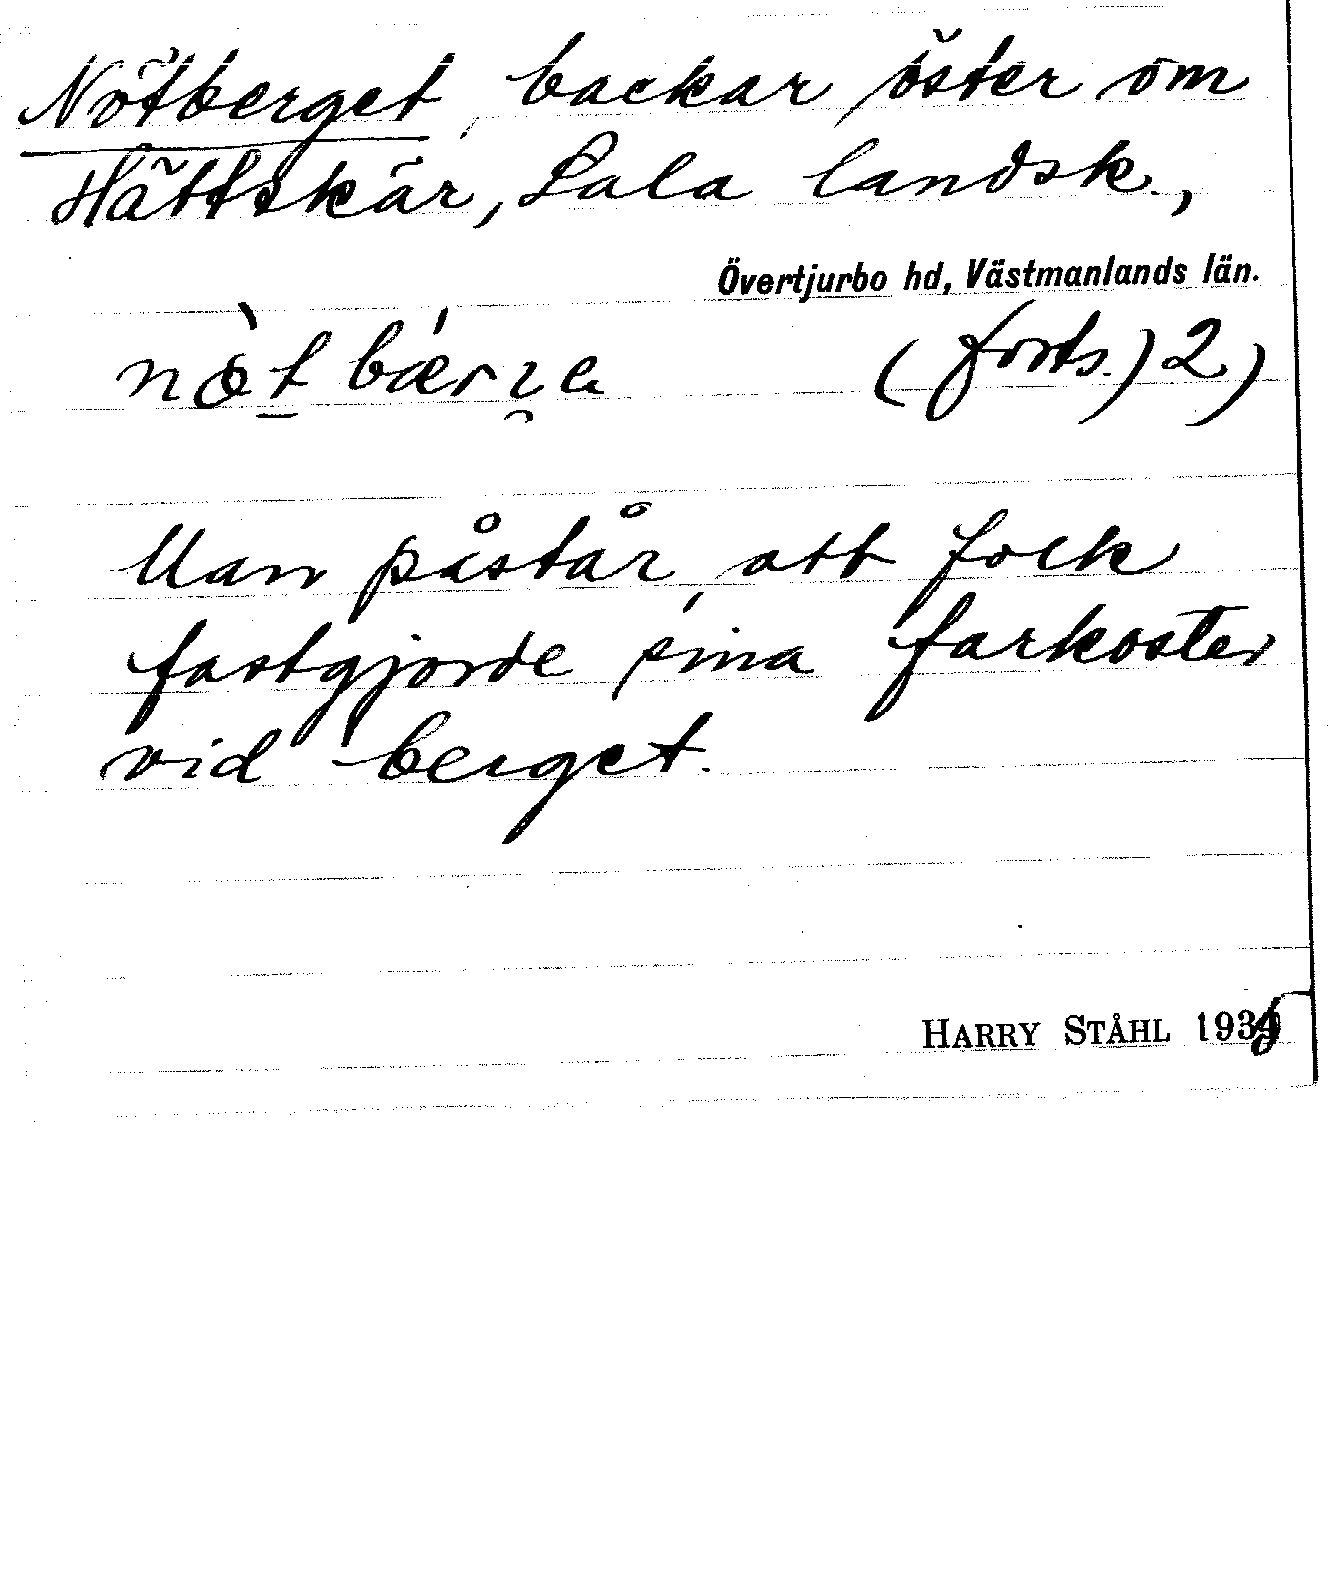 Nötberget, backar öster om
Hättskär, Sala landsk.,
Övertjurbo hd, Västmanlands län.
(forts.) 2)
Man påstår, att folk
fastgjorde sina farkoster
vid berget.
HARRY STÅHL